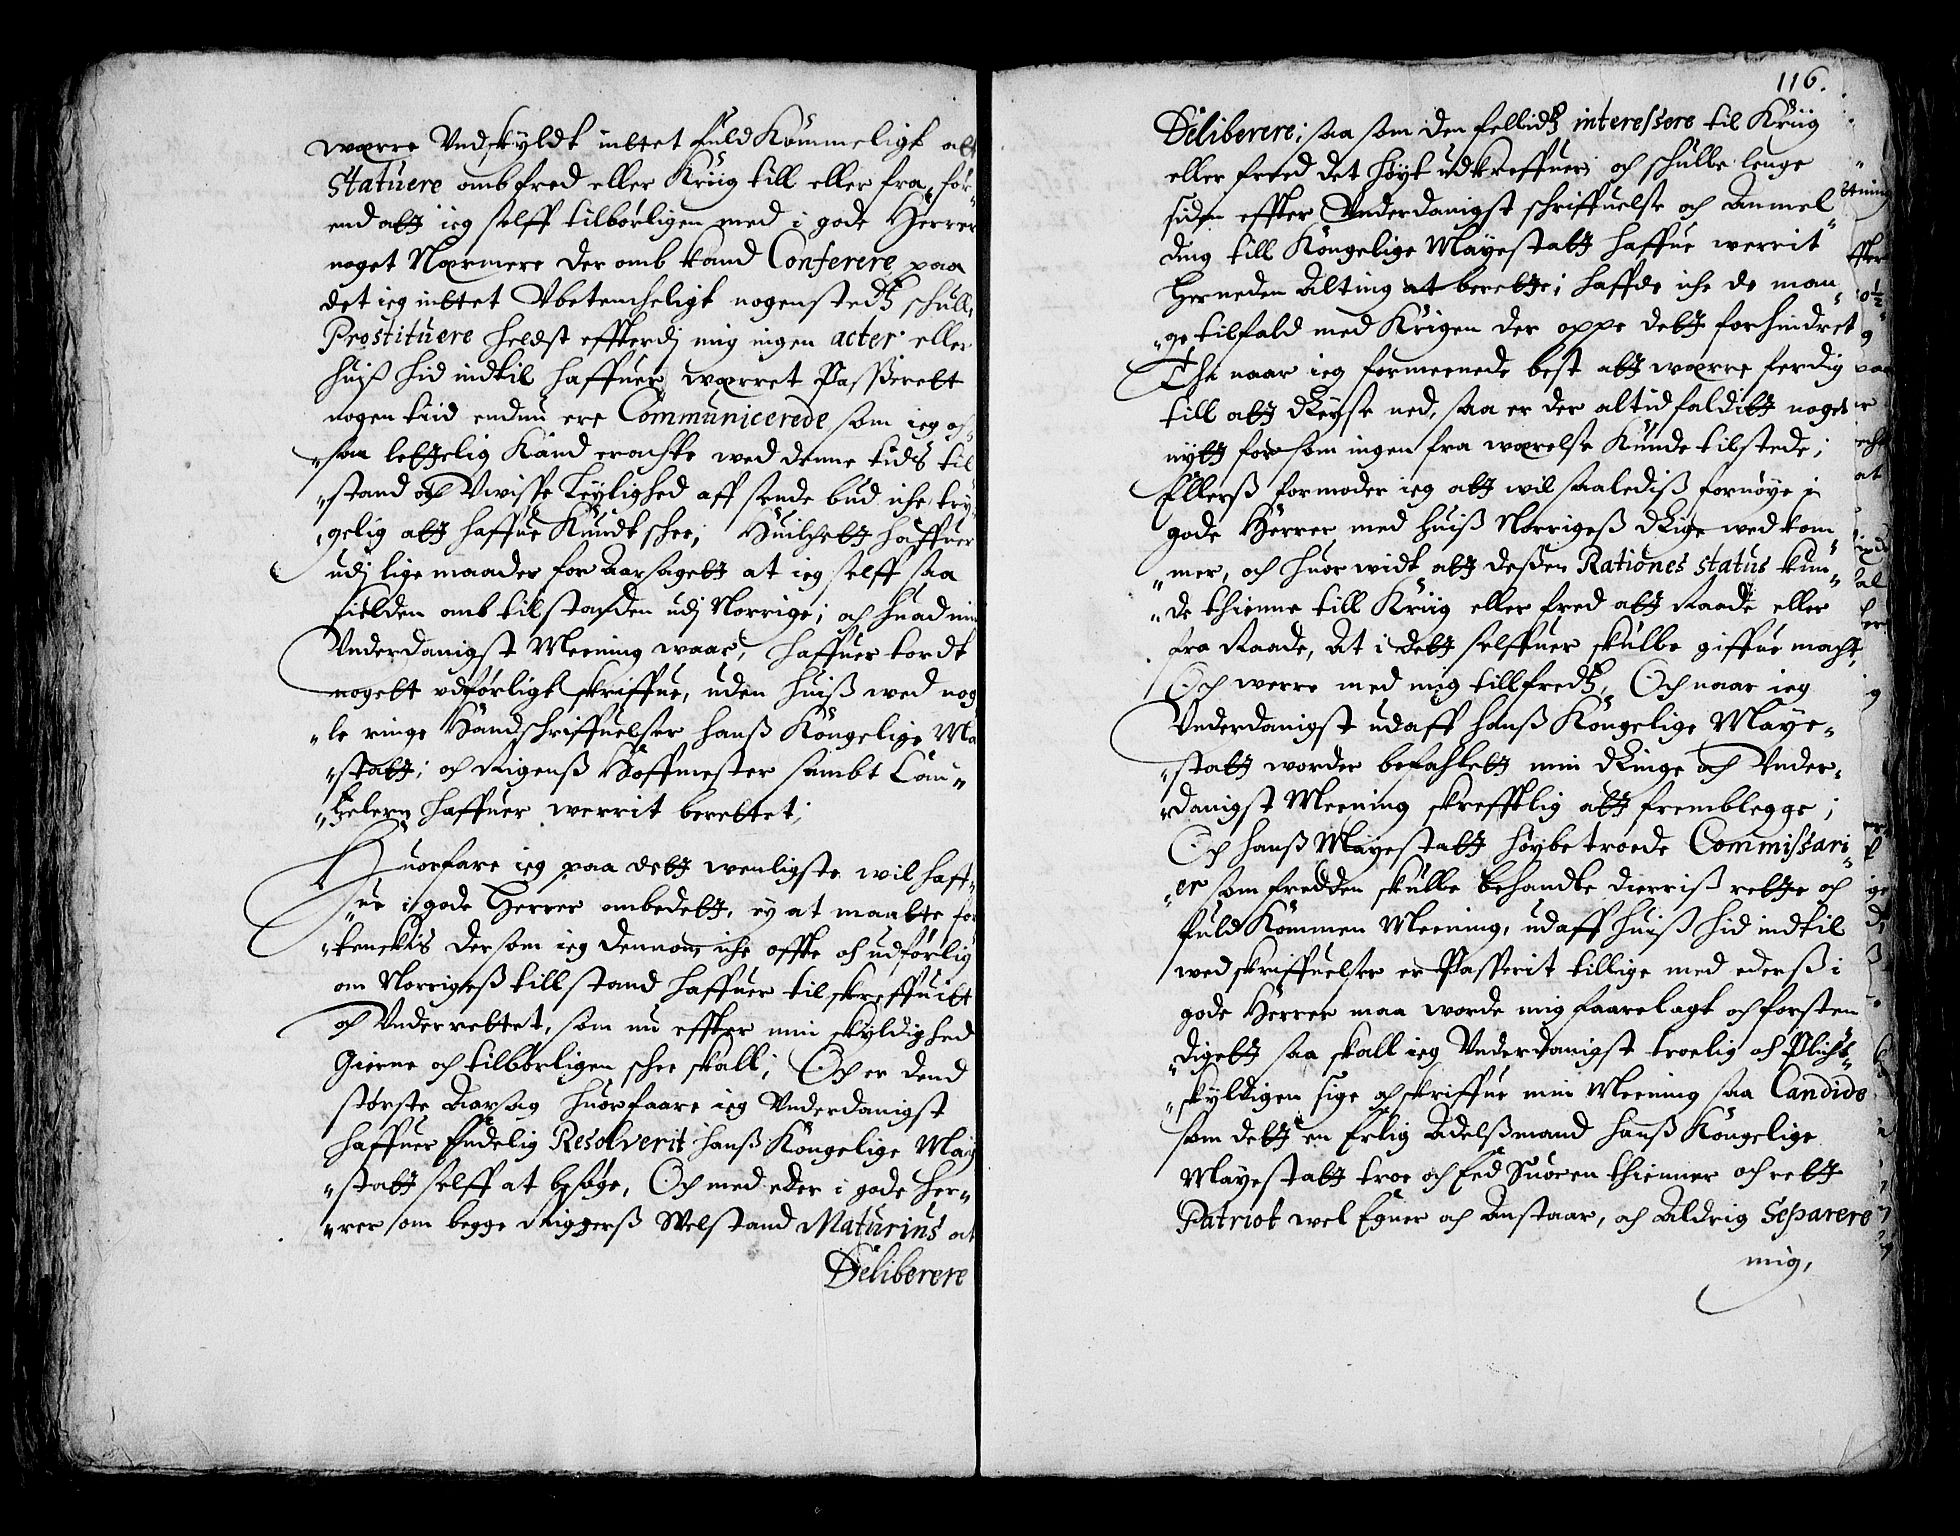 wærre Vndskyldt indtet fuldKommeligt att
Statuere omb fred eller Kriig till eller fra, för„
end att ieg selff tilbörligen med i gode Herrer
noget Nærmere der omb kand Conferere, paa
det ieg indtet Vbetencheligt nogenstedtz schulle
Prostituere heldst effterdj mig ingen acter eller
huiß hid indtil haffuer wærret Passerett
nogen tiid endnu ere Communicerede som ieg og„
„saa letteelig Kand eracte wed denne tids til„
„stand och Vwisse Leylighed aff sende bud iche try„
„gelig att haffue Kundt schee; Huilchett haffuer
udj lige maader for Aarsagett at ieg selff saa
sielden omb tilstanden udj Norrige; och huad min
Vnderdanigst Meening waar, haffuer tordt
nogett vdförligt skriffue, uden huiß wed nog„
„le ringe Handschriffuelser hanß Kongelige Ma
„statt; och Rigenß Hoffmester sambt Can„
„tzelern haffuer werrit berettet;
Huorfare ieg paa dett wenligste wil haff„
„ue i gode Herrer ombedett, ey at maatte for
„tenckis dersom ieg dennom iche offte och udförlig
om Norrigeß tillstand haffuer tilskreffuitt
och Vnderrettet, som nu effter min skyldighed
Gierne och tilbörligen schee skall; Och er dend
störste Aarsag huorfaare ieg Vnderdanigst
haffuer Endelig Resolverit hanß Kongelige May
„statt selff at besöge, Och med eder i gode Her„
„rer som begge Riggerß Welstand Maturius at
Deliberere
116.
Deliberere; saa som den fellidtz interessere til Kriig
eller freed det höyt udkreffuer; och schulle lenge
siden effter Vnderdanigst schriffuelse och Anmel„
ding till Kongelige Mayestatt haffue werrit
Herneden Alting at berette; haffde iche de man„
„ge tilfald med Krigen der oppe dett forhindret
Thi naar ieg formeenede best att wærre ferdig
till att Reyse ned, saa er der altid falditt noget
nytt for som ingen fra wærelse Kunde tilstede;
Ellerß formoder ieg att wil saaledis fornöye i
gode Herrer med huiß Norrigeß Rige wed kom„
„mer, och huor widt att deßen Rationes Status kun„
„de thienne till Kriig eller fred att Raade eller
fra Raade, At i dett selffuer skulle giffue macht,
Och werre med mig tillfredtz, Och naar ieg
Vnderdanigst udaff hanß Kongelige Maye„
„statt worder befahlett min Ringe och Vnder„
„danigst Meening skrefftlig att fremblegge;
Och hanß Mayestatt höybetroede Commissari„
„er som fredden skulle behandle dierriß rette och
fuld Kommen Meening, udaff huiß hid indtil
wed skriffuelser er Passerit tillige med ederß i
gode Herrer maa worde mig faarelagt och forsten„
„digett saa skall ieg Vnderdanigst troelig och Plicht„
„skyldigen sige och skriffue min Meening saa Candide
som dett en Erlig Adelßmand hanß Kongelige
Mayestatt troe och Eed Suoren thienner och rett
Patriot wel Egner och Anstaar, och Aldrig Separere
mig,